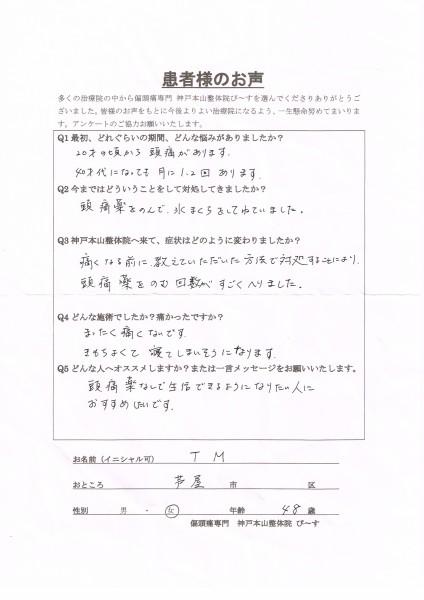 患者様のお声
多くの治療院の中から偏頭痛専門 神戸本山整体院ぴ～すを選んでくださりありがとうご
ざいました。皆様のお声をもとに今後よりよい治療院になるよう、一生懸命努めてまいりま
す。アンケートのご協力お願いいたします。
Q1 最初、どれぐらいの期間、どんな悩みがありましたか？
20才の頃から 頭痛があります。
40才代になっても 月に1.2回 あります。
Q2 今まではどういうことをして対処してきましたか？
頭痛薬をのんで、氷まくらをしてねていました。
Q3 神戸本山整体院へ来て、症状はどのように変わりましたか？
痛くなる前に、教えていただいた方法で対処することにより、
頭痛薬をのむ回数がすごくへりました。
Q4 どんな施術でしたか？痛かったですか？
まったく痛くないです。
きもちよくて 寝てしまいそうになります。
Q5 どんな人へオススメしますか？または一言メッセージをお願いいたします。
頭痛薬なしで生活できるようになりたい人に
おすすめしたいです。
お名前（イニシャル可） T M
おところ 芦屋 市 区
性別 男 ・ 女 年齢 48 歳
偏頭痛専門 神戸本山整体院 ぴ～す